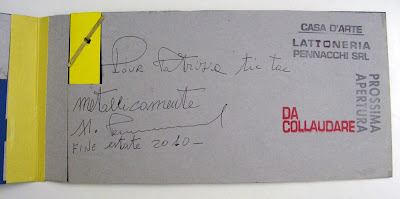 Pour Patrizia tic tac
metallicamente
FINE estate 2010-
CASA D'ARTE
LATTONERIA
PENNACCHI SRL
DA
COLLAUDARE
PROSSIMA
APERTURA